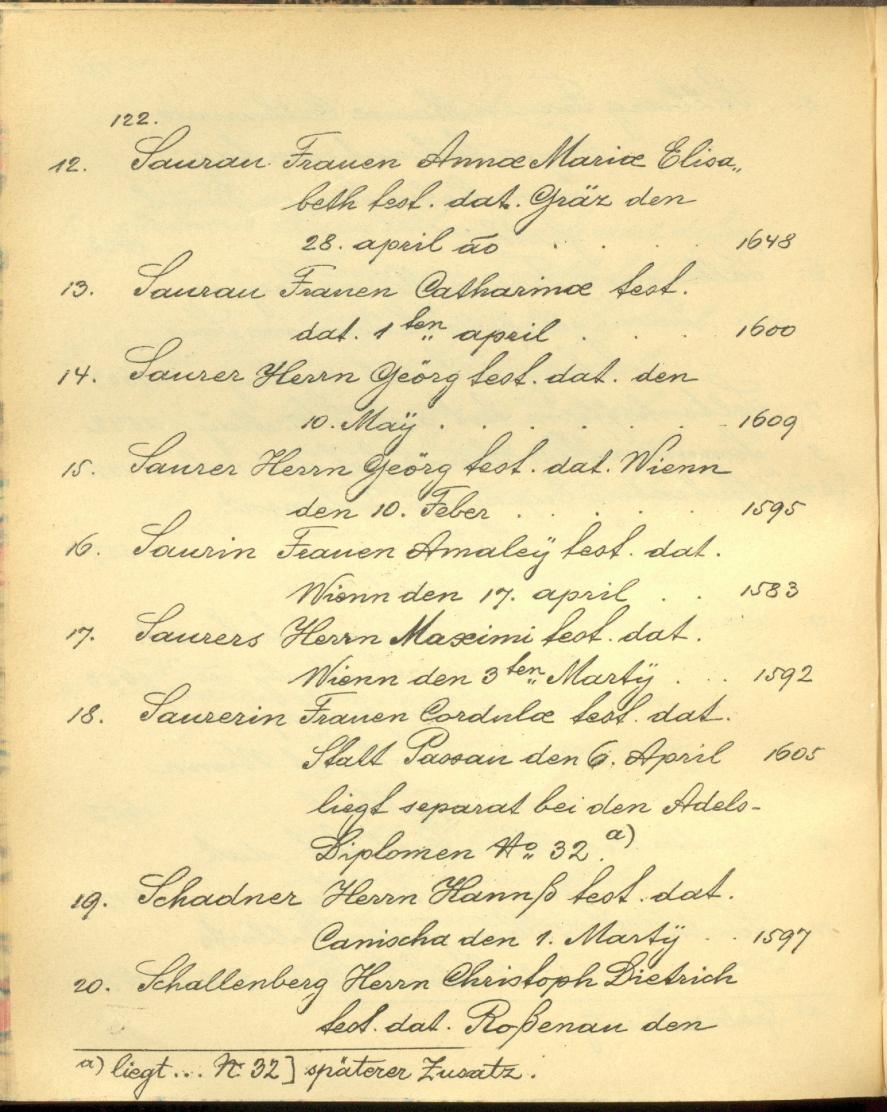 122.
12. Saurau Frauen Annæ Mariæ Elisa„
beth test. dat. Gräz den
28. april āo . . . . 1648
13. Saurau Frauen Catharinæ test.
dat. 1 ten„ april . . . 1600
14. Saurer Herrn Geörg test. dat. den
10. Maÿ . . . . . . 1609
15. Saurer Herrn Geörg test. dat. Wienn
den 10. Feber . . . . 1595
16. Saurin Frauen Amaleÿ test. dat.
Wienn den 17. april . . 1583
17. Saurers Herrn Maximi test. dat.
Wienn den 3 ten„ Martÿ . . . 1592
18. Saurerin Frauen Cordulæ test. dat.
Statt Passau den 6. April 1605
liegt separat bei den Adels-
Diplomen No„ 32. a)
19. Schadner Herrn Hannß test. dat.
Canischa den 1. Martÿ . . 1597
20. Schallenberg Herrn Christoph Dietrich
test. dat. Roßenau den
a) liegt... N. 32] späterer Zusatz.